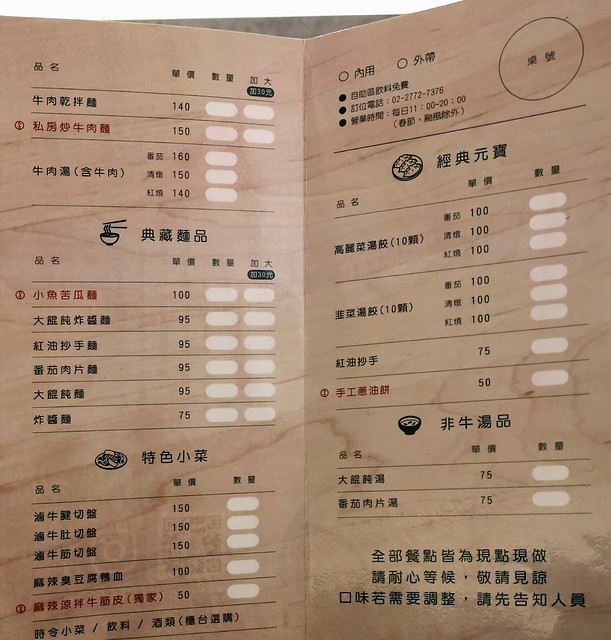 品名 單價 數量 加大
加30元
牛肉乾拌麵 140
私房炒牛肉麵 150
牛肉湯(含牛肉) 番茄 160
清燉 150
紅燒 140
典藏麵品
品名 單價 數量 加大
加30元
小魚苦瓜麵 100
大餛飩炸醬麵 95
紅油抄手麵 95
番茄肉片麵 95
大餛飩麵 95
炸醬麵 75
特色小菜
品名 單價 數量
滷牛腱切盤 150
滷牛肚切盤 150
滷牛筋切盤 150
麻辣臭豆腐鴨血 100
麻辣涼拌牛筋皮(獨家) 50
時令小菜 / 飲料 / 酒類(櫃台選購)
內用 外帶
桌號
自助區飲料免費
訂位電話:02-2772-7376
營業時間:每日11:00-20:00
(春節、颱風除外)
經典元寶
品名 單價 數量
高麗菜湯餃(10顆) 番茄 100
清燉 100
紅燒 100
韭菜湯餃(10顆) 番茄 100
清燉 100
紅燒 100
紅油抄手 75
手工蔥油餅 50
非牛湯品
品名 單價 數量
大餛飩湯 75
番茄肉片湯 75
全部餐點皆為現點現做
請耐心等候,敬請見諒
口味若需要調整,請先告知人員